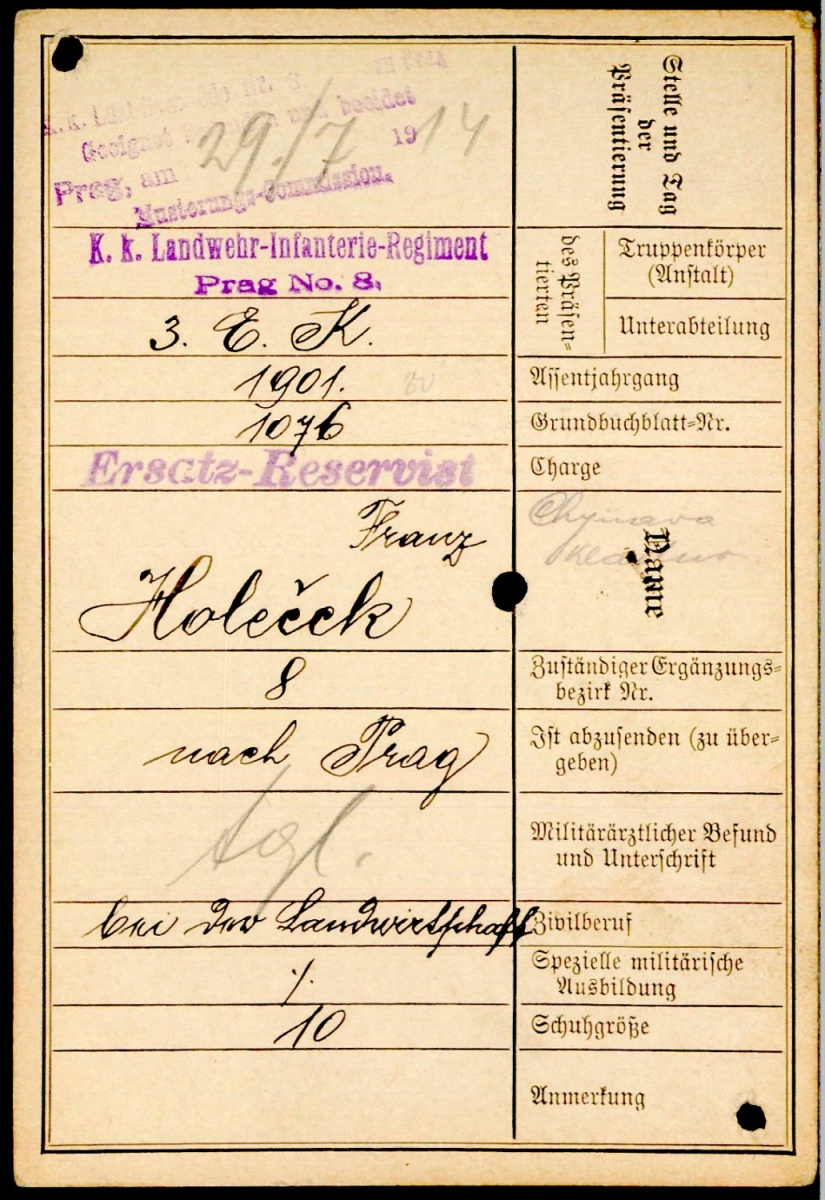 Nr. 8
Geeignet
und beeidet
Prag, am 29./7 1914
Musterungs-Commission.
Stelle und Tag
der
Präsentierung
K. k. Landwehr-Infanterie-Regiment
Prag No. 8.
des Präsen-
tierten
Truppenkörper
(Anstalt)
3. E. K.
Unterabteilung
1901.
Assentjahrgang
1076
Grundbuchblatt-Nr.
Ersatz-Reservist
Charge
Franz
Holeček
Name
8
Zuständiger Ergänzungs-
bezirk Nr.
nach Prag
Ist abzusenden (zu über-
geben)
tgl.
Militärärztlicher Befund
und Unterschrift
bei der Landwirtschaft
Zivilberuf
Spezielle militärische
Ausbildung
10
Schuhgröße
Anmerkung